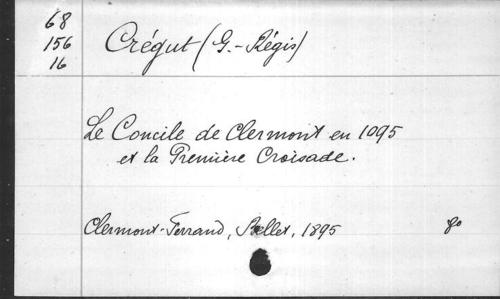 68
156
16
Crégut (G.-Régis)
Le Concile de Clermont en 1095
et la Première Croisade.
Clermont-Ferrand, Bellet, 1895